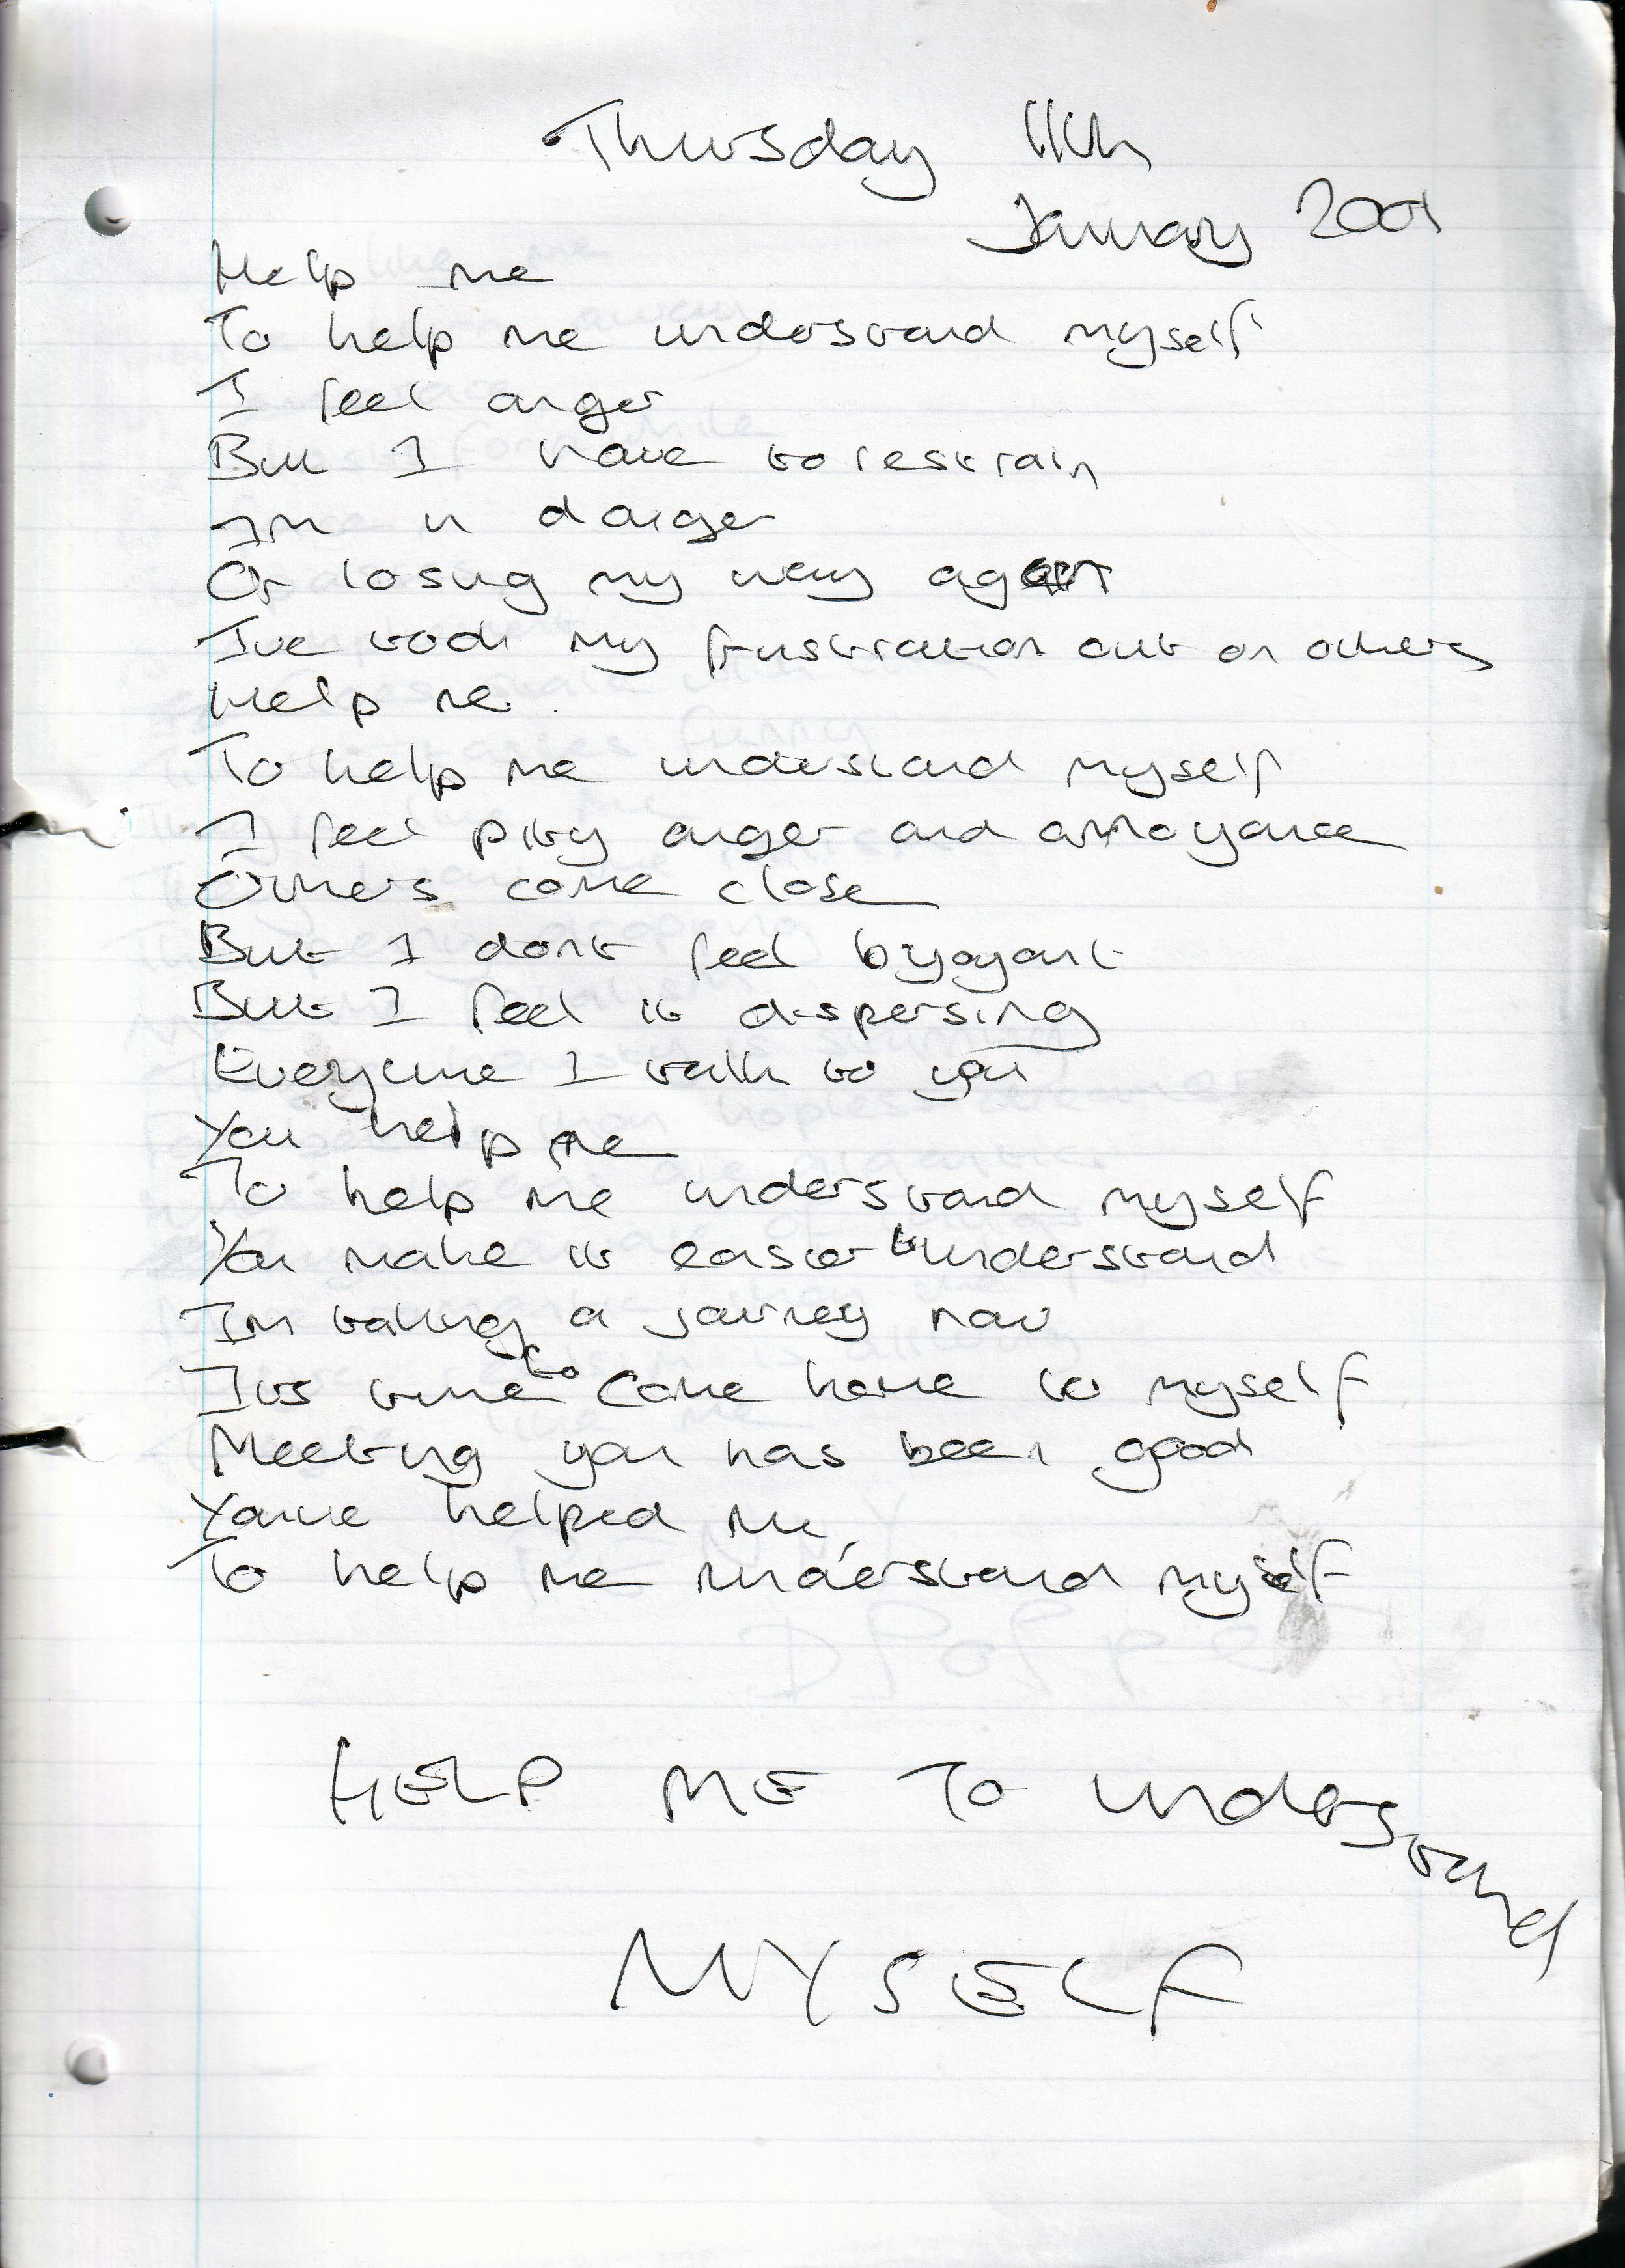 Thursday 11th
January 2001
Help me
To help me understand myself
I feel anger
But I have to restrain
Im in danger
Of losing my way again
Ive took my frustration out on others
Help me.
To help me understand myself
I feel pity anger and annoyance
Others come close
But I dont feel byoyant
But I feel it dispersing
Everytime I talk to you
You help me
To help me understand myself
You make it easier to understand
Im taking a journey now
Its time to come home to myself
Meeting you has been good
Youve helped me
To help me understand myself
HELP ME To understand
MYSELF